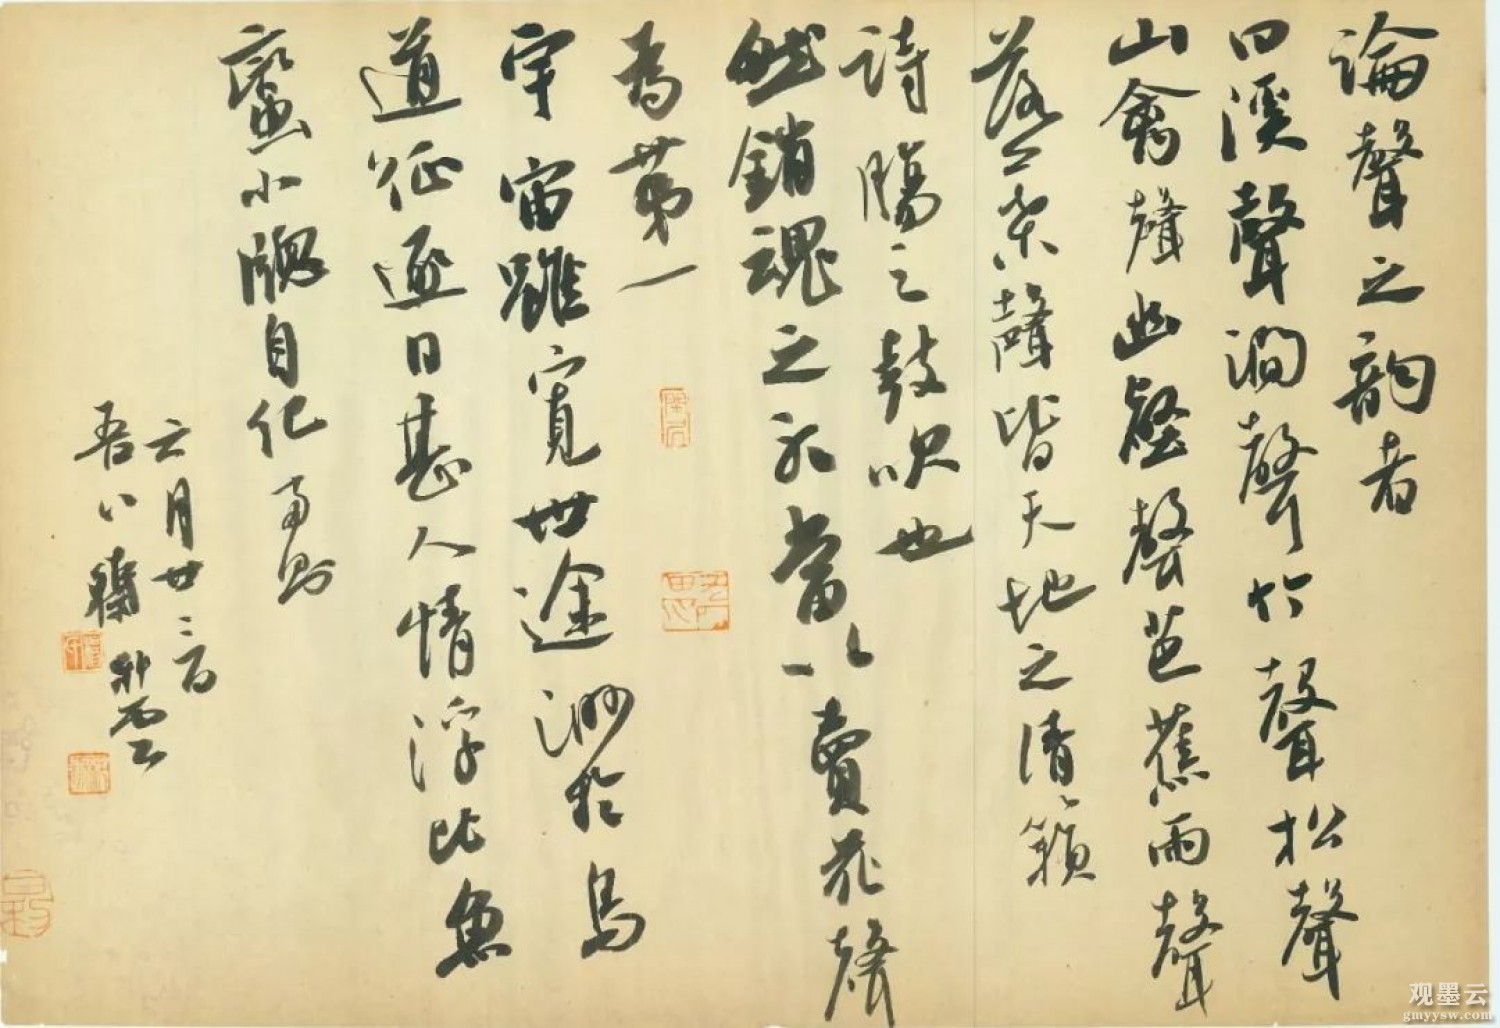 論聲之韻者
曰溪聲澗聲竹聲松聲
山禽聲幽壑聲芭蕉雨聲
落葉聲皆天地之清籟
詩腸之鼓吹也
然銷魂之聽當以賣花聲
為第一
宇宙雖寬世途渺於鳥
道征逐日甚人情浮比魚
蠻小牕自紀兩則
六月廿二
观墨云
gmyysw.com